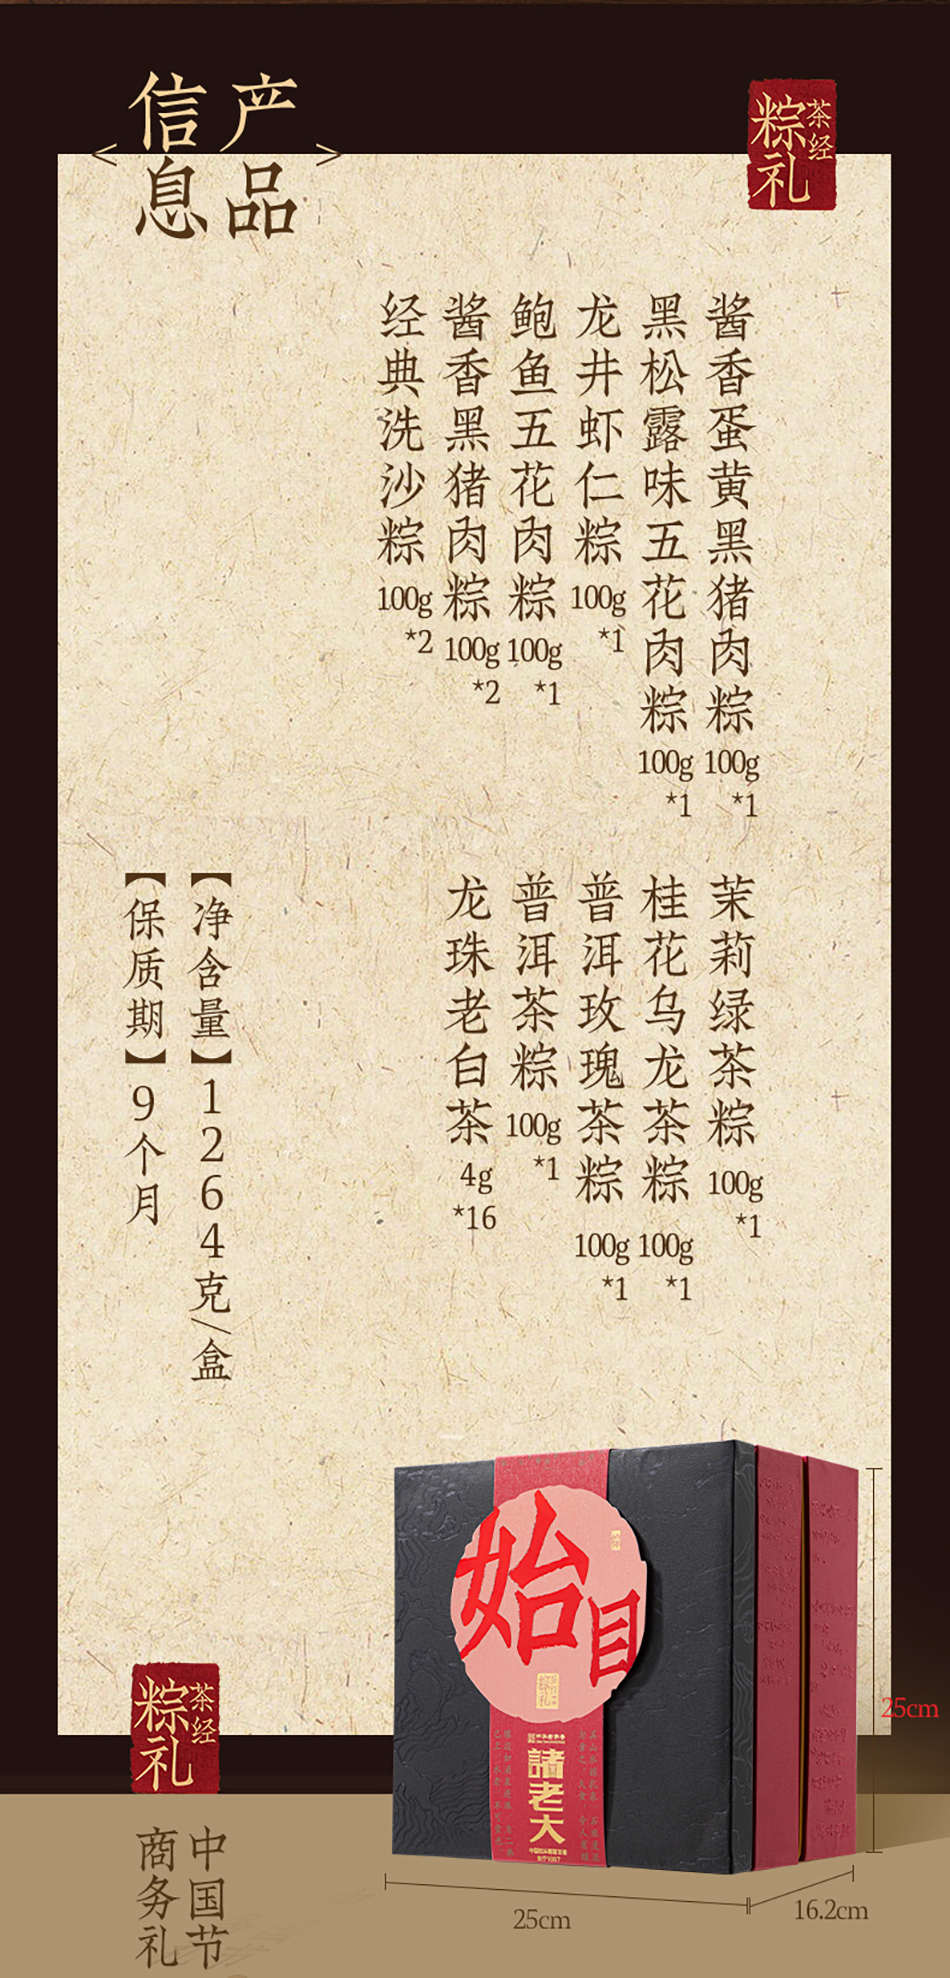 产品
信息
茶经
粽礼
酱香蛋黄黑猪肉粽100g*1
黑松露味五花肉粽100g*1
龙井虾仁粽100g*1
鲍鱼五花肉粽100g*1
酱香黑猪肉粽100g*2
经典洗沙粽100g*2
茉莉绿茶粽100g*1
桂花乌龙茶粽100g*1
普洱玫瑰茶粽100g*1
普洱茶粽100g*1
龙珠老白茶4g*16
【净含量】1264克/盒
【保质期】9个月
始
目
諸老大
25cm
25cm
16.2cm
茶经
粽礼
中国节
商务礼